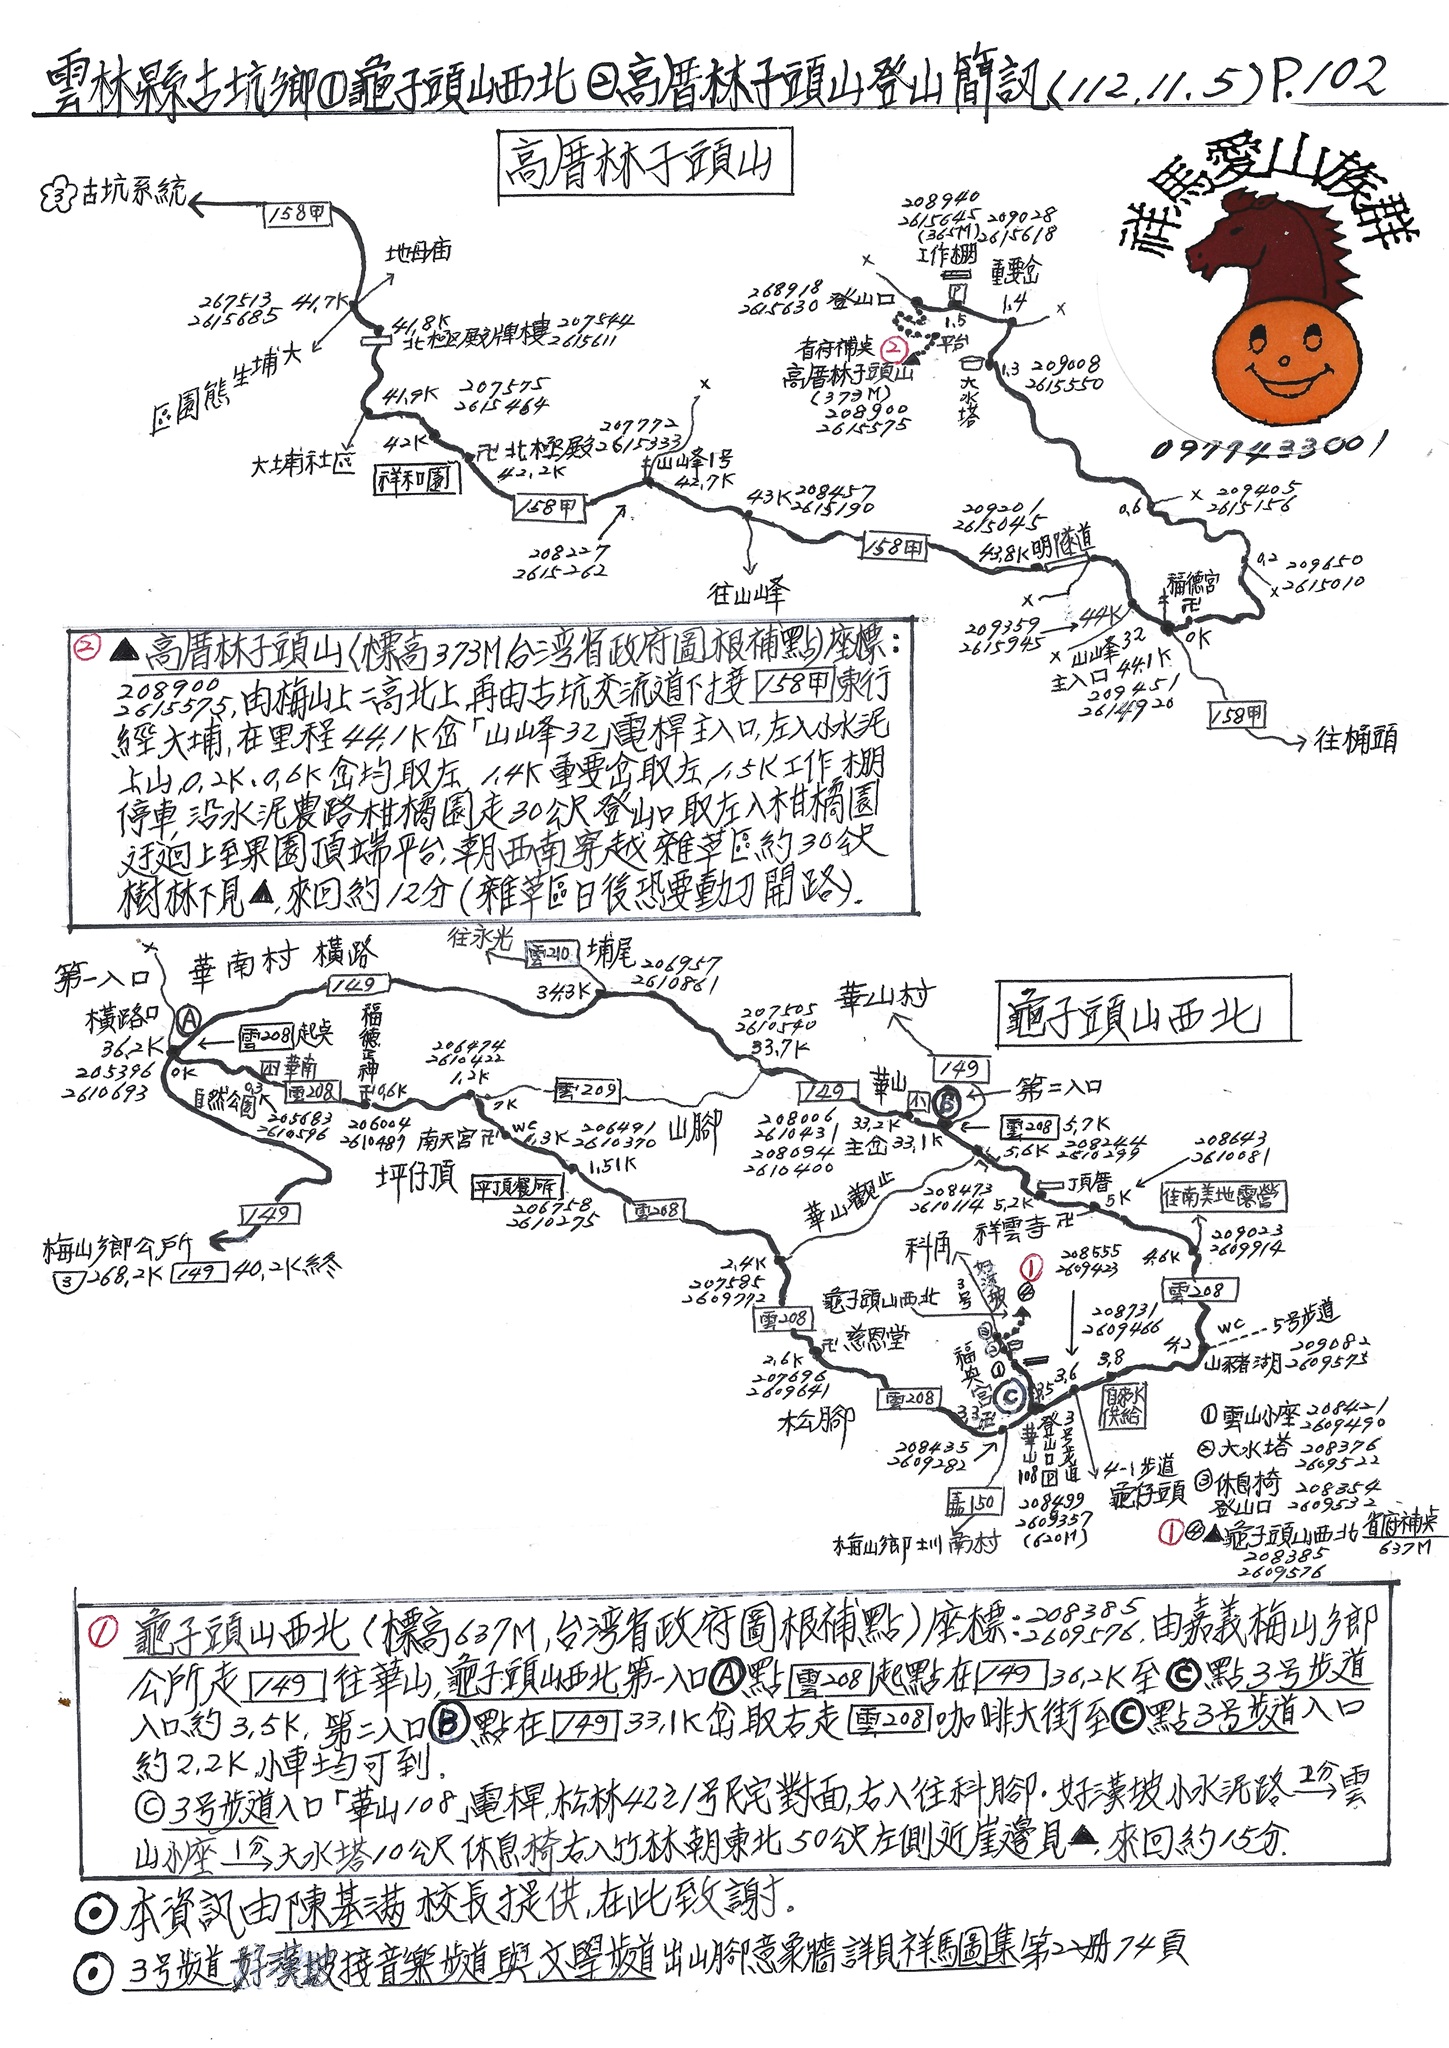 雲林縣古坑鄉①龜子頭山西北②高厝林子頭山登山簡訊(112.11.5)P.102
高厝林子頭山
祥馬愛山族群
0977433001
③古坑系統
158甲
地母庙
267513
2615685
41.7K
大埔生態園區
41.8K
北極殿牌樓
207544
2615611
41.9K
207575
2615464
大埔社區
42K
祥和園
卍北極殿
42.2K
158甲
207772
2615333
山山峰1号
42.7K
208227
2615262
43K
208457
2615190
往山峰
158甲
209201
2615045
43.8K
明隧道
209359
2615945
44K
山山峰32
44.1K
主入口
209451
2614920
福德宮
卍
0K
158甲
往桶頭
0.2
209650
2615010
0.6
209405
2615156
1.3
209008
2615550
大水塔
1.4
重要岔
209028
2615618
208940
2615645
(365M)
工作棚
P
1.5
平台
268918
2615630
登山口
省府補点
②
高厝林子頭山
(373M)
208900
2615575
②▲高厝林子頭山(標高373M台湾省政府圖根補點)座標:
208900
2615575,由梅山上二高北上,再由古坑交流道下接158甲東行
經大埔,在里程44.1K岔「山山峰32」電桿主入口,左入小水泥
上山,0.2K、0.6K岔均取左,1.4K重要岔取左,1.5K工作棚
停車,沿水泥農路柑橘園走30公尺登山口取左入柑橘園
迂迴上至果園頂端平台,朝西南穿越雜草區約30公尺
樹林下見▲,來回約12分(雜草區日後恐要動刀開路).
龜子頭山西北
第一入口
橫路口
Ⓐ
36.2K
205396
2610693
0K
華南村 橫路
149
雲208起点
華南
雲208
自然公園
0.3K
205683
2610596
福德正神
卍0.6K
206004
2610487
206474
2610422
1.2K
南天宮卍
WC
1.3K
206491
2610370
坪仔頂
1.51K
平頂餐所
206758
2610275
雲208
149
梅山鄉公所
③268.2K 149 40.2K終
往永光
雲210
埔尾
34.3K
206957
2610861
雲209
山腳
207505
2610540
33.7K
149
華山
小
33.2K
208006
2610431
208094
2610400
主岔33.1K
華山村
149
Ⓑ
第二入口
雲208
5.7K
5.6K
208244
2610299
華山觀止
208473
2610114
5.2K
頂厝
祥雲寺卍
5K
208643
2610081
佳南美地露營
209023
2609914
4.6K
雲208
WC
4.2
5号步道
209082
2609575
山豬湖
2.4K
207585
2609772
雲208
卍慈恩堂
2.6K
207696
2609641
松腳
雲208
3.3
福興宮卍
208435
2609282
嘉150
梅山鄉圳南村
科角
好漢坡
3号
①
④
龜子頭山西北
③
②
①
Ⓒ
3.5
3.6
208555
2609423
208731
2609466
3.8
自來水供給
3号步道
登山口P
華山108
208499
2609357
(620M)
4-1步道
龜仔頭
①雲山小座 208421
2609490
②大水塔 208376
2609522
③休息椅 208354
登山口 2609532
①④▲龜子頭山西北 省府補点
637M
208385
2609576
①龜子頭山西北(標高637M,台湾省政府圖根補點)座標:208385
2609576,由嘉義梅山鄉
公所走149往華山,龜子頭山西北第一入口Ⓐ點雲208起點在149 36.2K至Ⓒ點3号步道
入口約3.5K,第二入口Ⓑ點在149 33.1K岔取右走雲208咖啡大街至Ⓒ點3号步道入口
約2.2K,小車均可到.
Ⓒ3号步道入口「華山108」電桿,松林42之1号民宅對面,右入往科腳·好漢坡小水泥路 1分→雲
山小座 1分→大水塔10公尺休息椅右入竹林朝東北50公尺左側近崖邊見▲,來回約15分.
⊙本資訊由陳基滿校長提供,在此致謝.
⊙3号步道好漢坡接音樂步道與文學步道出山腳意象牆詳見祥馬圖集第22册74頁